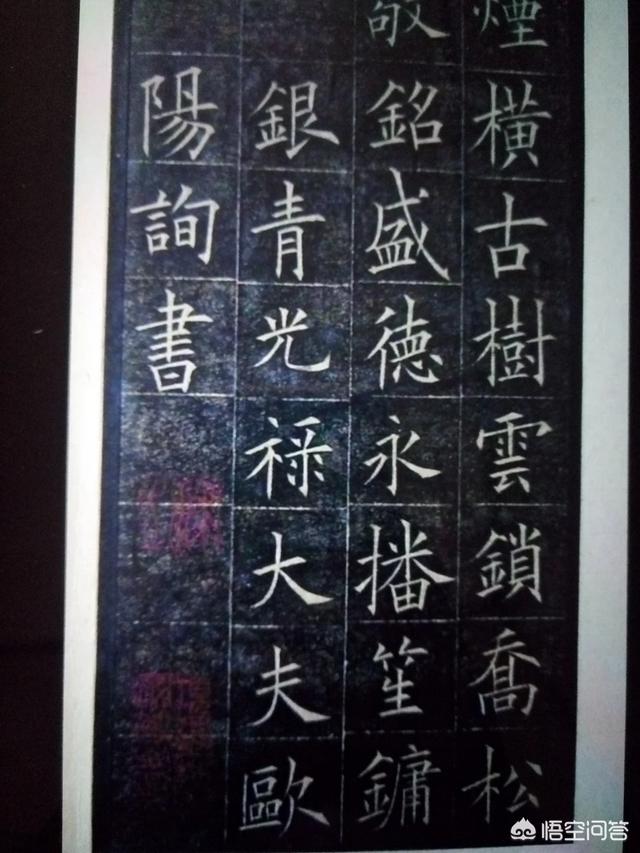 煙橫古樹雲鎖喬松
敬銘盛德永播笙鏞
銀青光祿大夫歐
陽詢書
悟空问答